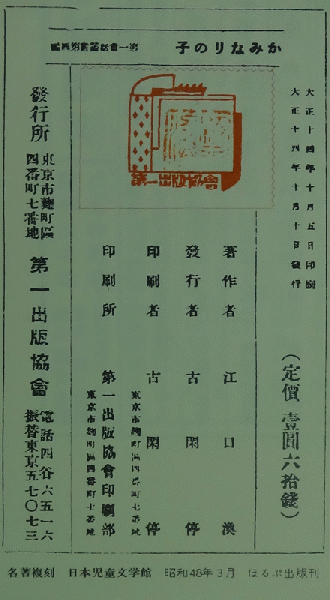 かみなりの子
第一會話童話第四編
大正十四年十月五日印刷
大正十四年十月十日發行
(定價 壹圓六拾錢)
第一出版協會
著作者 江口 渙
發行者 古閑 停
印刷者 古閑 停
東京市麹町區四番町七番地
印刷所 第一出版協會印刷部
東京市麹町區四番町七番地
發行所
東京市麹町區
四番町七番地
第一出版協會
電話四谷六五一六
振替東京五七〇七三
名著複刻 日本児童文学館 昭和48年3月 ほるぷ出版刊